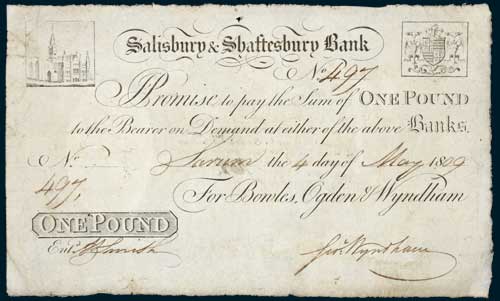 Salisbury & Shaftesbury Bank
No. 497
I Promise to pay the Sum of ONE POUND
to the Bearer on Demand at either of the above Banks.
No. Sarum the 4 day of May 1809
497,
For Bowles, Ogden & Wyndham
ONE POUND
Entd. Geo. Wyndham